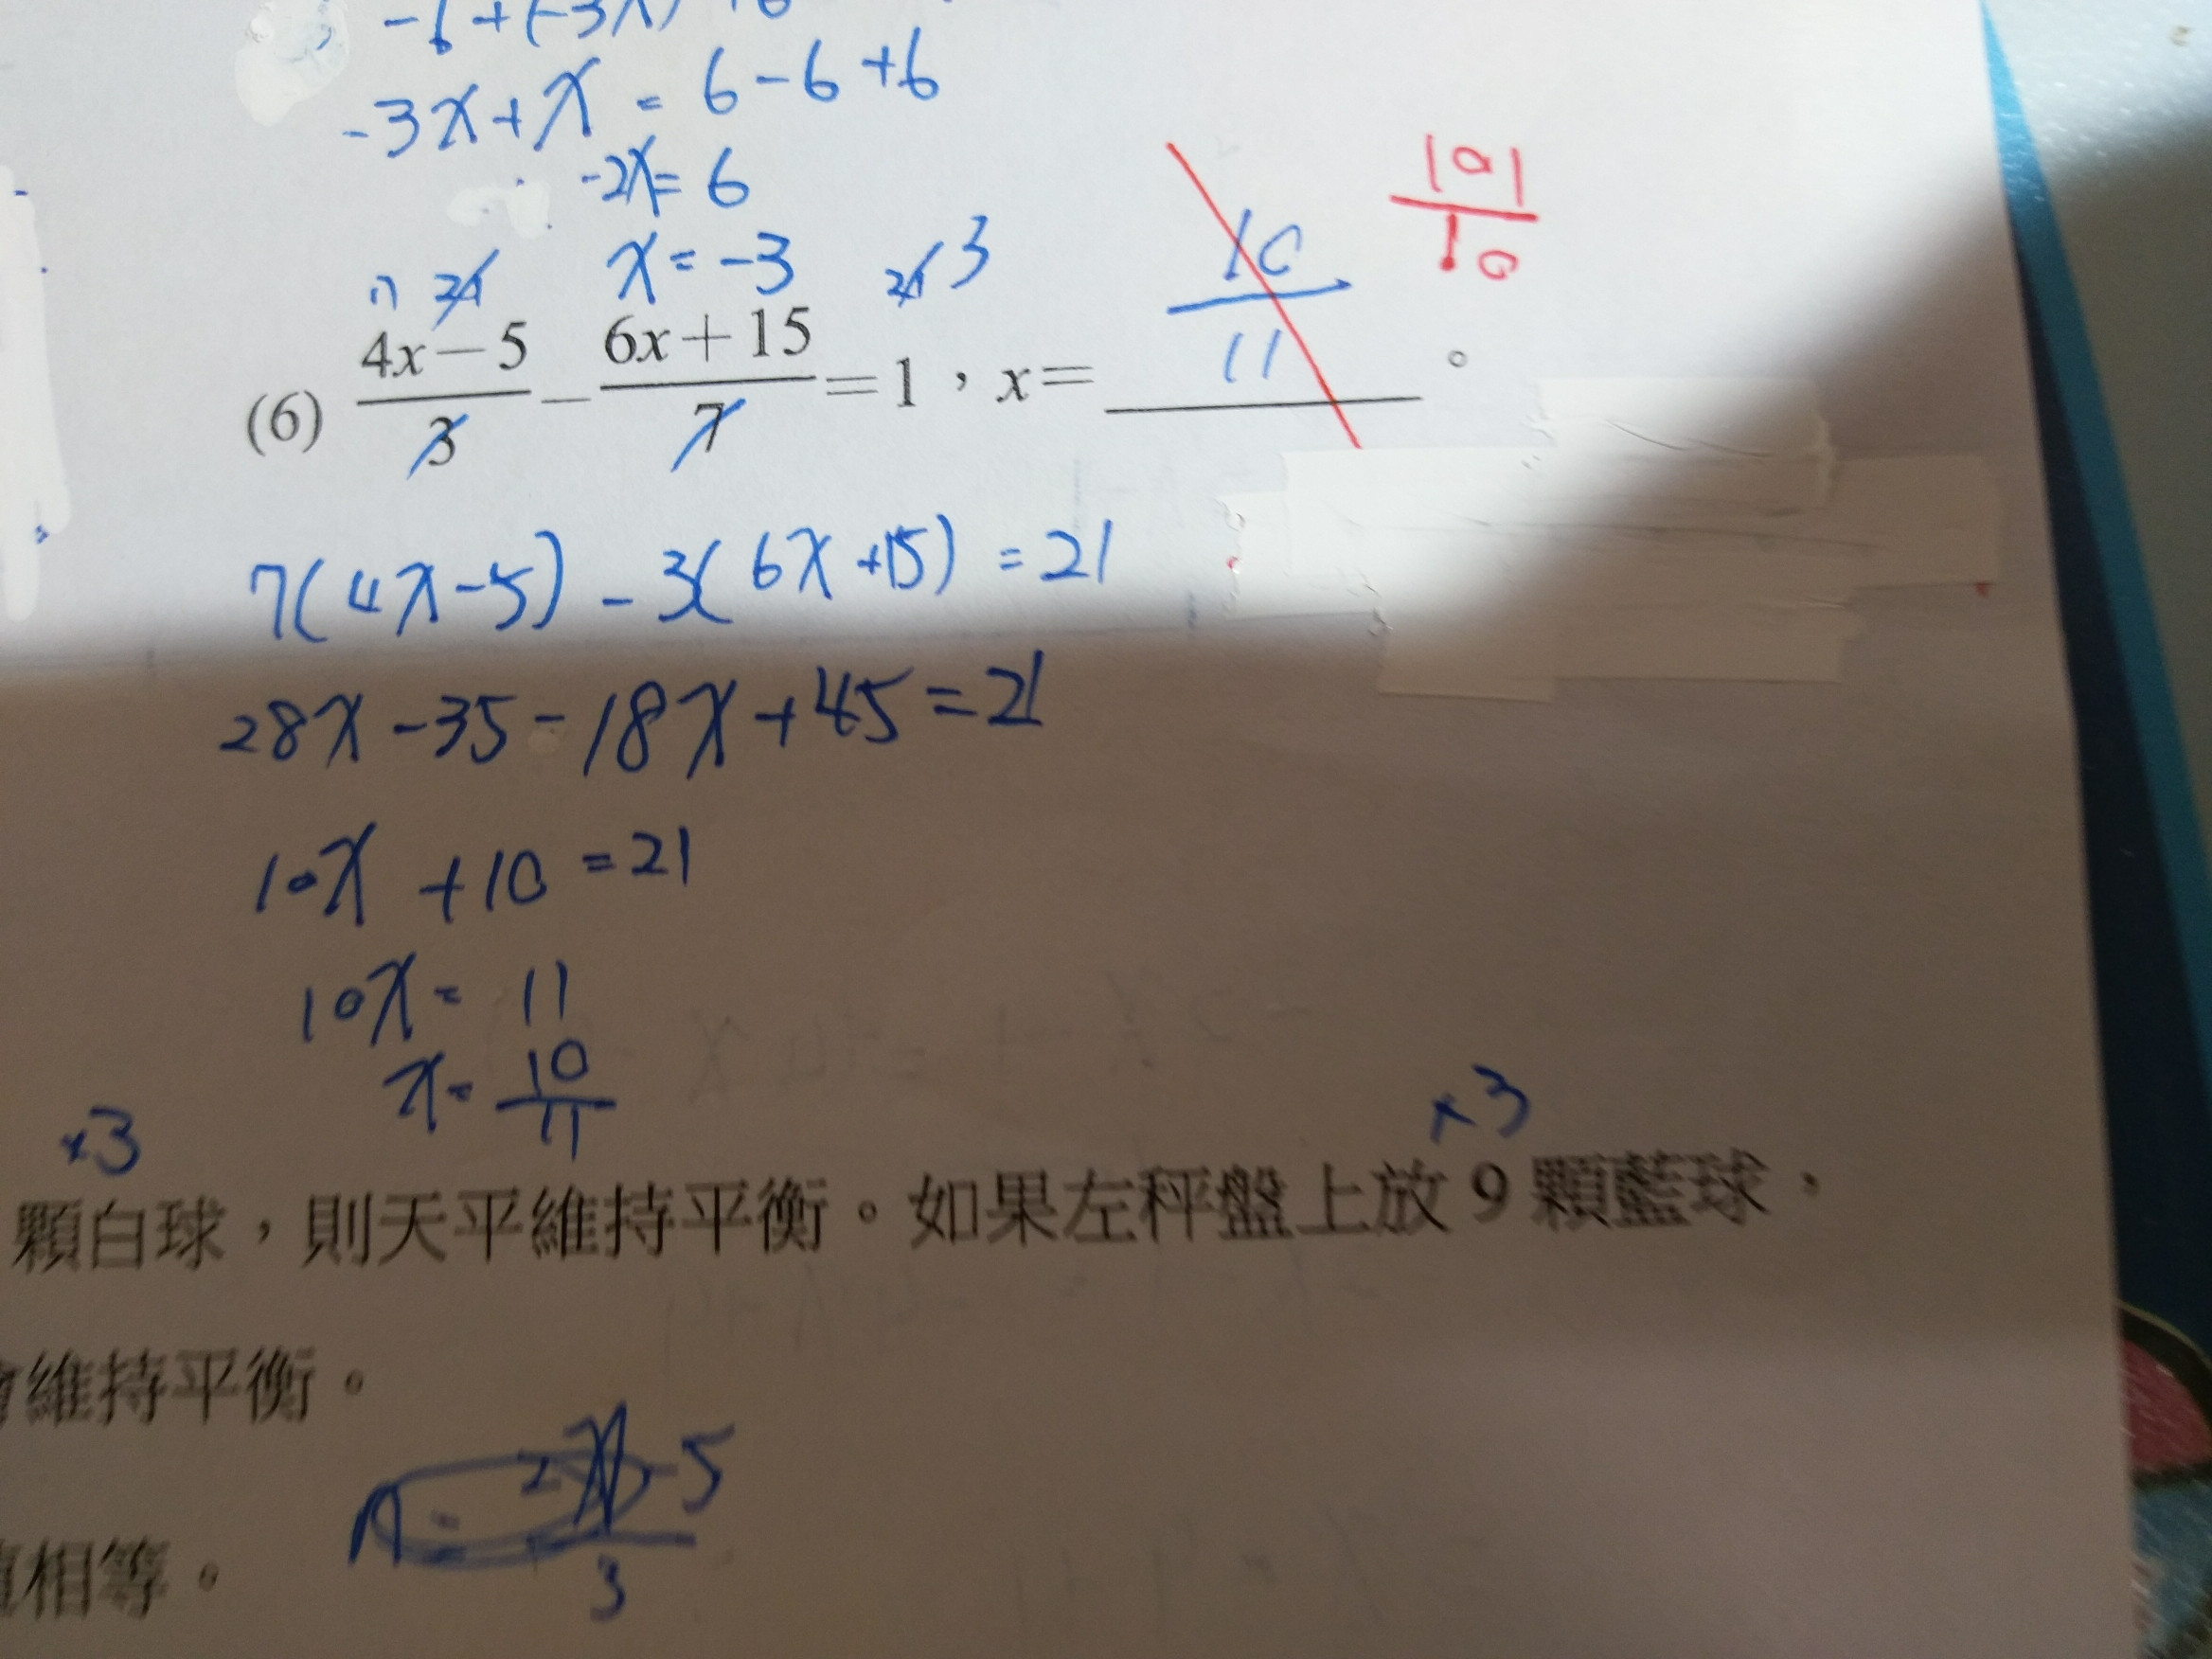 -6+(-3x)
-3x+x = 6-6+6
-2x= 6
x= -3
7 21 21 3
(6) \frac{4x-5}{3} - \frac{6x+15}{7} =1，x= \frac{10}{11} 。 \frac{101}{10}
7(4x-5) - 3(6x+15) = 21
28x-35-18x+45=21
10x +10 =21
10x= 11
x= \frac{10}{11}
×3 ×3
顆白球，則天平維持平衡。如果左秤盤上放9顆藍球，
維持平衡。
-5
3
相等。